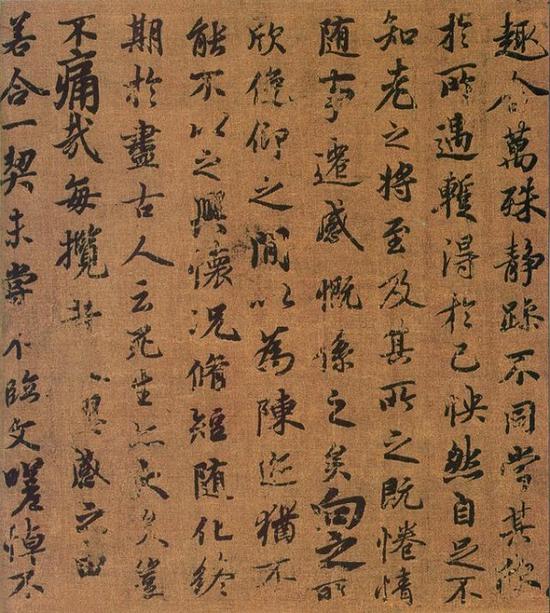 趣舍萬殊靜躁不同當其欣
於所遇蹔得於己怏然自足不
知老之將至及其所之既惓情
随事遷感慨係之矣向之所
欣俛仰之閒以為陳迹猶不
能不以之興懷況脩短随化終
期於盡古人云死生亦大矣豈
不痛哉每攬昔人興感之由
若合一契未嘗不臨文嗟悼不